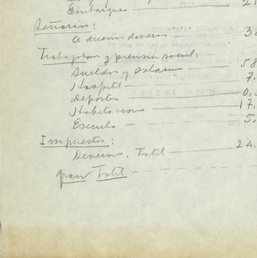 Embarques 2
Señorío:
A dueños diversos — 3
Trabajadores y previsión social:
Sueldos y salarios — 58
Hospital — 7.
Deportes — 0,
Habitación — 17,
Escuela — 5,
Impuestos:
Diversos. Total — 24.
gran Total. —